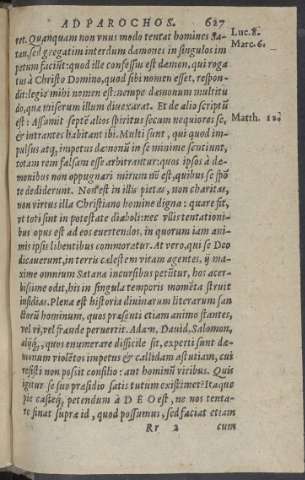 AD PAROCHOS. 627
ret. Quanquam non vnus modo tentat homines Sa-
tan, sed gregatim interdum dæmones in singulos im
petum faciũt: quod ille confessus est dæmon, qui roga
tus à Christo Domino, quod sibi nomen esset, respon-
dit: legio mihi nomen est: nempe dæmonum multitu
do, quæ miserum illum diuexarat. Et de alio scriptũ
est: Assumit septẽ alios spiritus secum nequiores se,
& intrantes habitant ibi. Multi sunt, qui quod im-
pulsus atq, impetus dæmonũ in se minime sentiunt,
totam rem falsam esse arbitrantur: quos ipsos à dæ-
monibus non oppugnari mirum nõ est, quibus se spõ
te dediderunt. Non est in illis pietas, non charitas,
non virtus illa Christiano homine digna: quare fit,
vt toti sint in potestate diaboli: nec vllis tentationi-
bus opus est ad eos euertendos, in quorum iam ani-
mis ipsis libentibus commoratur. At vero, qui se Deo
dicauerunt, in terris cælestem vitam agentes, ij ma-
xime omnium Satanæ incursibus petũtur, hos acer-
bissime odit, his in singula temporis momẽta struit
insidias. Plena est historia diuinarum literarum san
ctorũ hominum, quos præsenti etiam animo stantes,
vel vi, vel fraude peruertit. Adam, Dauid, Salomon,
alijq, quos enumerare difficile sit, experti sunt dæ-
monum violẽtos impetus & callidam astutiam, cui
resisti non possit consilio: aut hominũ viribus. Quis
igitur se suo præsidio satis tutum existimet? Itaque
pie casteq, petendum à DEO est, ne nos tenta-
ri sinat supra id, quod possumus, sed faciat etiam
Rr 2 cum
Luc. 8.
Marc. 6.
Matth. 12.